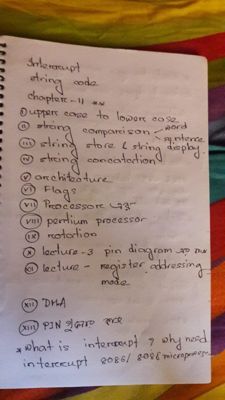 Interrupt
string code
chapter - 11 **
i upper case to lower case
ii string comparison word
sentence
iii string store & string display
iv string concatation
v architecture
vi Flags
vii Processor
viii pentium processor
ix notation
x lecture - 3 pin diagram
xi lecture - register addressing
mode
xii DMA
xiii PIN
* what is interrupt ? why need
interrupt 8086/ 8086